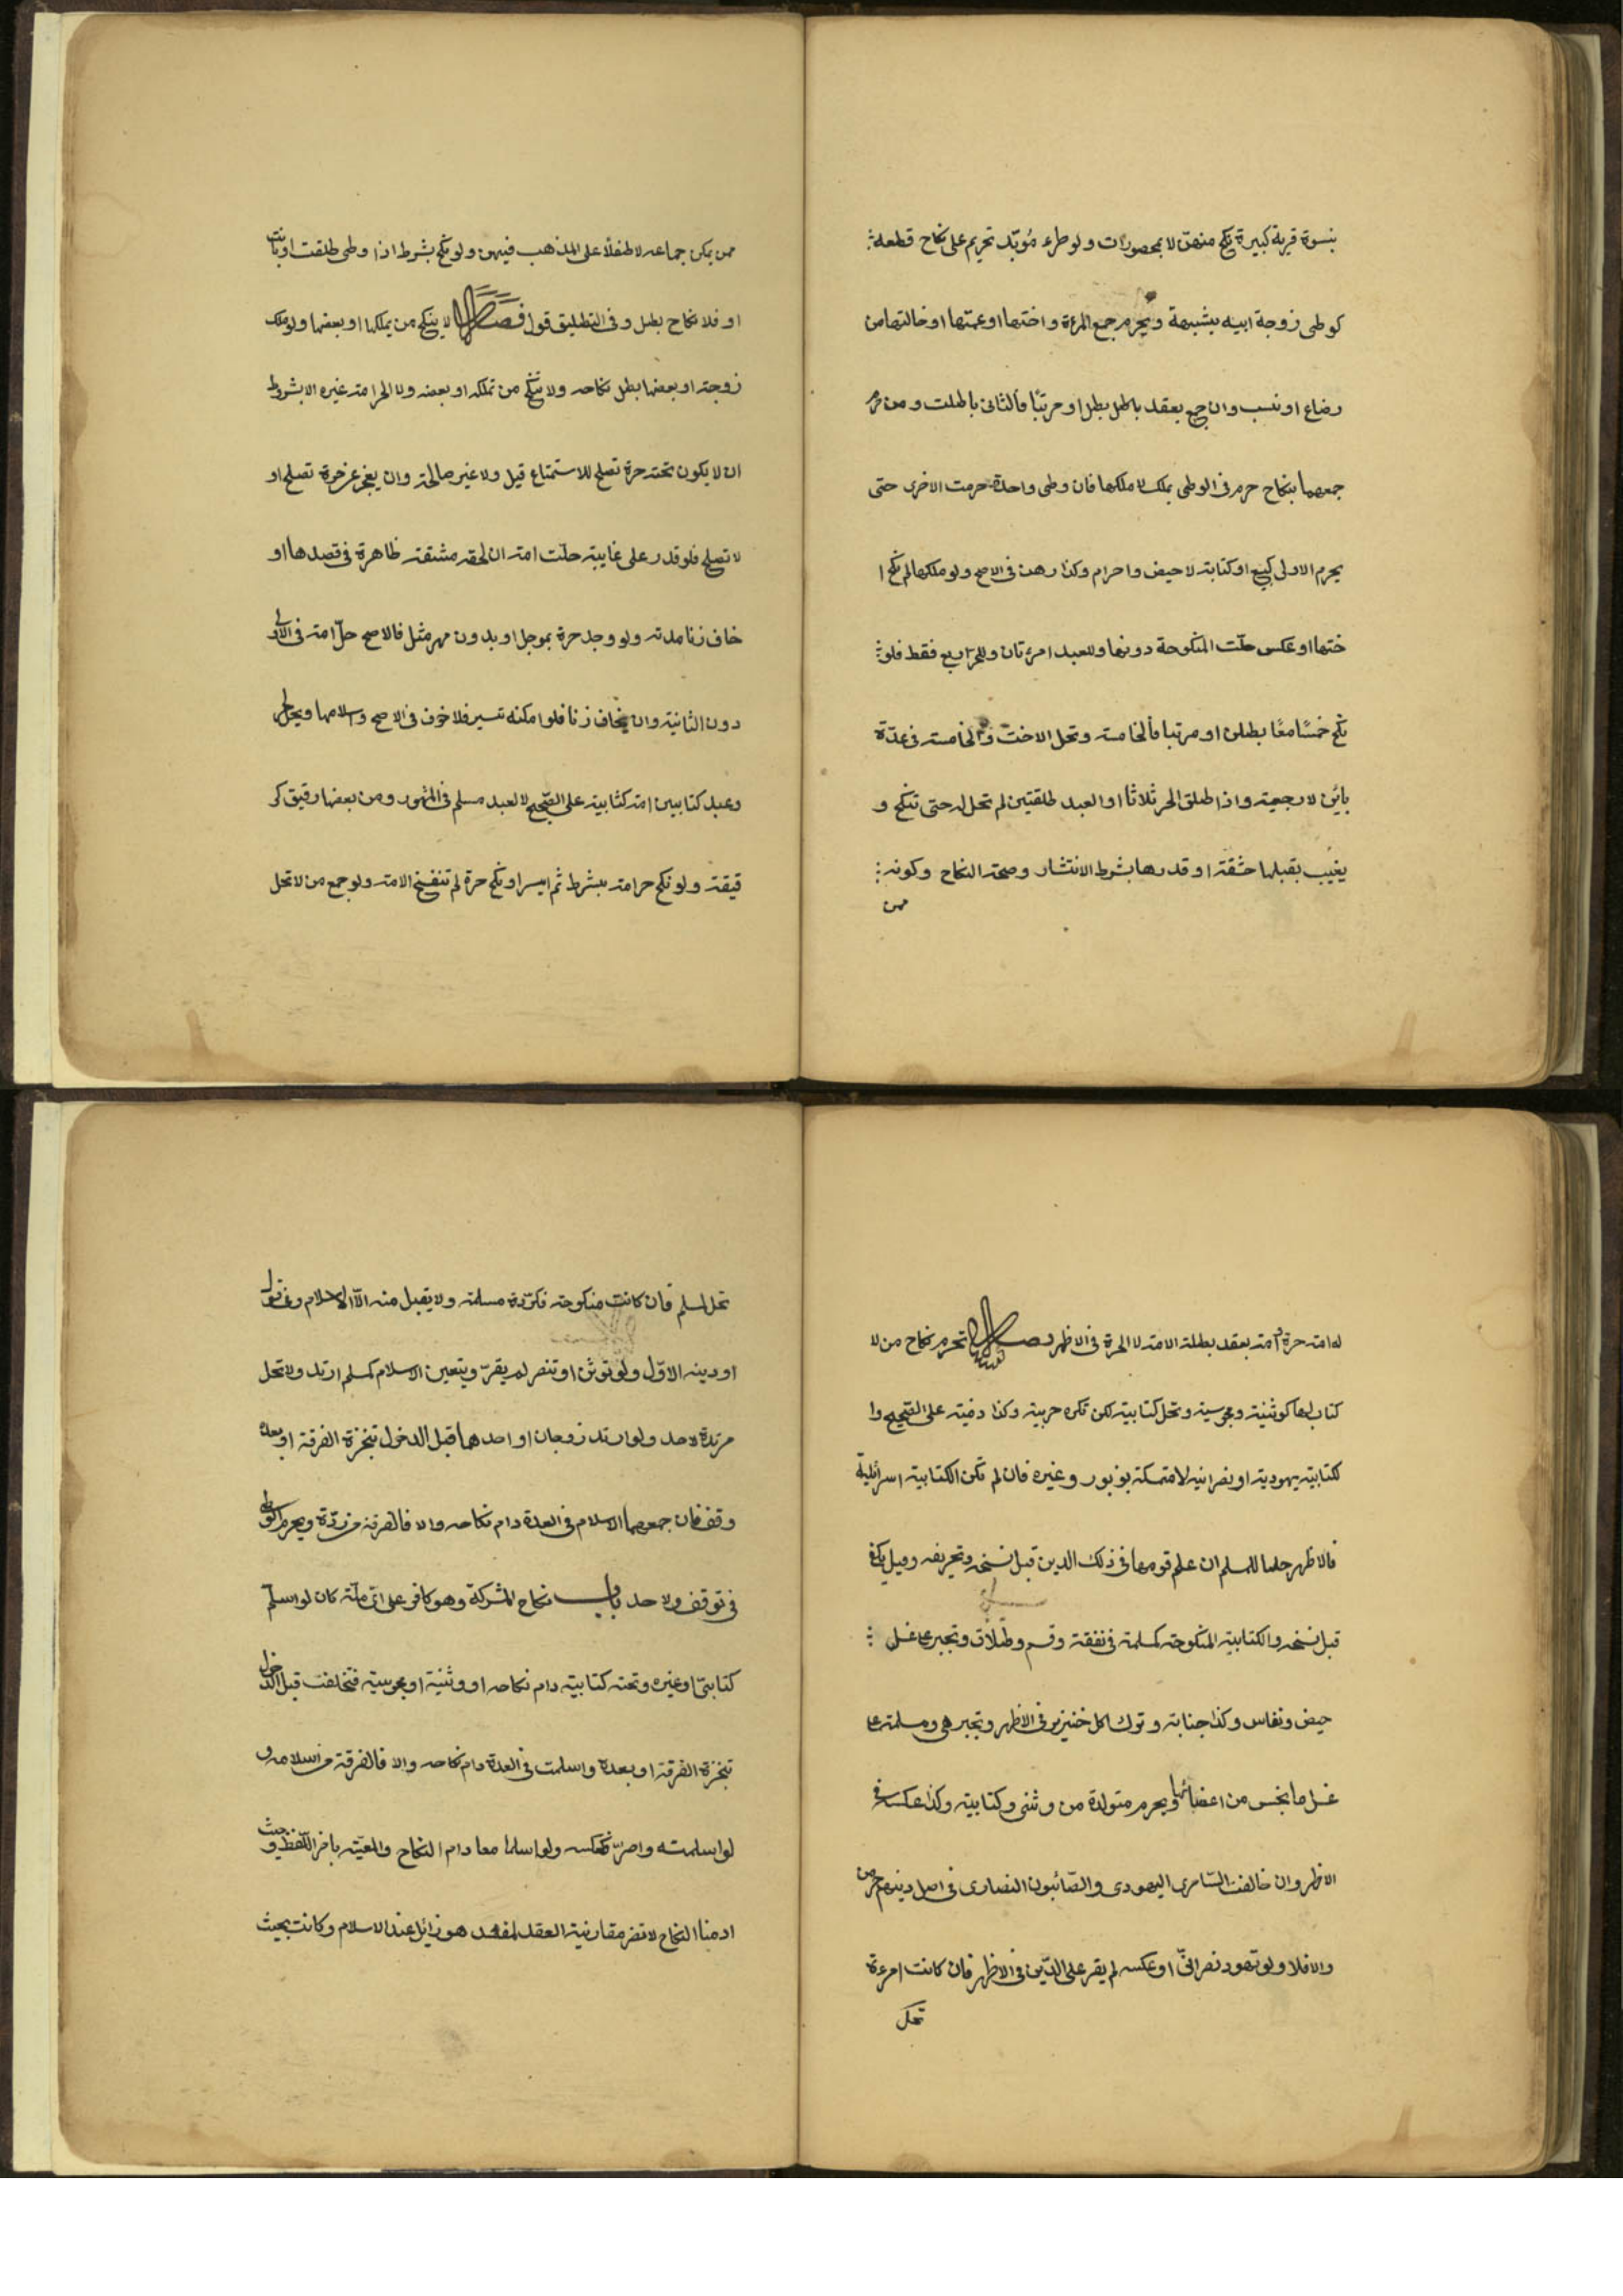 بنسوة قرية كبيرة نكح منهن لا بمحصورات ولو طرء مؤبد تحريم على نكاح قطعه
كوطى زوجة ابيه بشبهة ويحرم جمع المرءة واختها او عمتها او خالتها من
رضاع او نسب وان جمع بعقد باطل بطل او مرتبا فالثانى باطلت ومن حرم
جمعهما بنكاح حرم فى الوطى بملك لا ملكها فان وطى واحدة حرمت الاخرى حتى
يحرم الاولى كبيع او كتابة لا حيض واحرام وكذا رهن فى الاصح ولو ملكها ثم نكح ا
ختها او عكس حلت المنكوحة دونها وللعبد امرءتان وللحر اربع فقط فلو
نكح خمسا معا بطلن او مرتبا فالخامسة وتحل الاخت والخامسة فى عدة
بائن لا رجعية واذا طلق الحر ثلاثا او العبد طلقتين لم تحل له حتى تنكح و
يغيب بقبلها حشفة او قدرها بشرط الانتشار وصحة النكاح وكونه
ممن
ممن يمكن جماعه لا طفلا على المذهب فيهن ولو نكح بشرط اذا وطى طلقت او بانت
او فلا نكاح بطل وفى التطليق قول فصل لا ينكح من يملكها او بعضها ولو ملك
زوجته او بعضها بطل نكاحه ولا تنكح من تملكه او بعضه ولا الحر امة غيره الا بشروط
ان لا يكون تحته حرة تصلح للاستمتاع قيل ولا غير صالحة وان يعجز عن حرة تصلح او
لا تصلح فلو قدر على غايبة حلت امة ان لحقه مشقة ظاهرة فى قصدها او
خاف زنا مدته ولو وجد حرة بموجل او بدون مهر مثل فالاصح حل امة فى الاولى
دون الثانية وان يخاف زنا فلو امكنه تسير فلا خوف فى الاصح واسلامها ويحل لحر
وعبد كتابيين امة كتابية على الصحيح لا لعبد مسلم فى المشهور ومن بعضها رقيق كر
قيقة ولو نكح حر امة بشرط ثم ايسر او نكح حرة لم تنفسخ الامة ولو جمع من لا تحل
له امة حرة وامة بعقد بطلت الامة لا الحرة فى الاظهر فصل تحرم نكاح من لا
كتاب لها كوثنية ومجوسية وتحل كتابية لكن تكره حربية وكذا ذمية على الصحيح وا
لكتابية يهودية او نصرانية لا متمسكة بزبور وغيره فان لم تكن الكتابية اسرائلية
فالاظهر حلها للمسلم ان علم قومها فى ذلك الدين قبل نسخه وتحريفه وقيل يكفى
قبل نسخه والكتابية المنكوحة كمسلمة فى نفقة وقسم وطلاق وتجبر على غسل
حيض ونفاس وكذا جنابة وترك اكل خنزير فى الاظهر وتجبر هى ومسلمة على
غسل ما نجس من اعضائها ويحرم متولدة من وثنى وكتابية وكذا عكسه فى
الاظهر وان خالفت السامرى اليهودى والصائبون النصارى فى اصل دينهم حرمن
والا فلا ولو تهود نصرانى او عكسه لم يقر على الدين فى الاظهر فان كانت امرءة
تحل
تحل لمسلم فان كانت منكوحة فكردة مسلمة ولا يقبل منه الا الاسلام وفى قول
او دينه الاول ولو توثن او تنصر لم يقر ويتعين الاسلام كمسلم ارتد ولا تحل
مرتدة لاحد ولو ارتد زوجان او احدهما قبل الدخول تنجزة الفرقة او بعده
وقف فان جمعهما الاسلام فى العدة دام نكاحه والا فالفرقة من ردة ويحرم الوطى
فى توقف ولا حد باب نكاح المشركة وهو كافر على اى ملة كان لو اسلم
كتابى او غيره وتحته كتابية دام نكاحه او وثنية او مجوسية فتخلفت قبل الدخول
تنجزة الفرقة او بعده واسلمت فى العدة دام نكاحه والا فالفرقة من اسلامه و
لو اسلمت واصر فكعكسه ولو اسلما معا دام النكاح والمعية باخر اللفظ وحيث
ادمنا النكاح لا تضر مقارنية العقد لمفسد هو زائل عند الاسلام وكانت بحيث